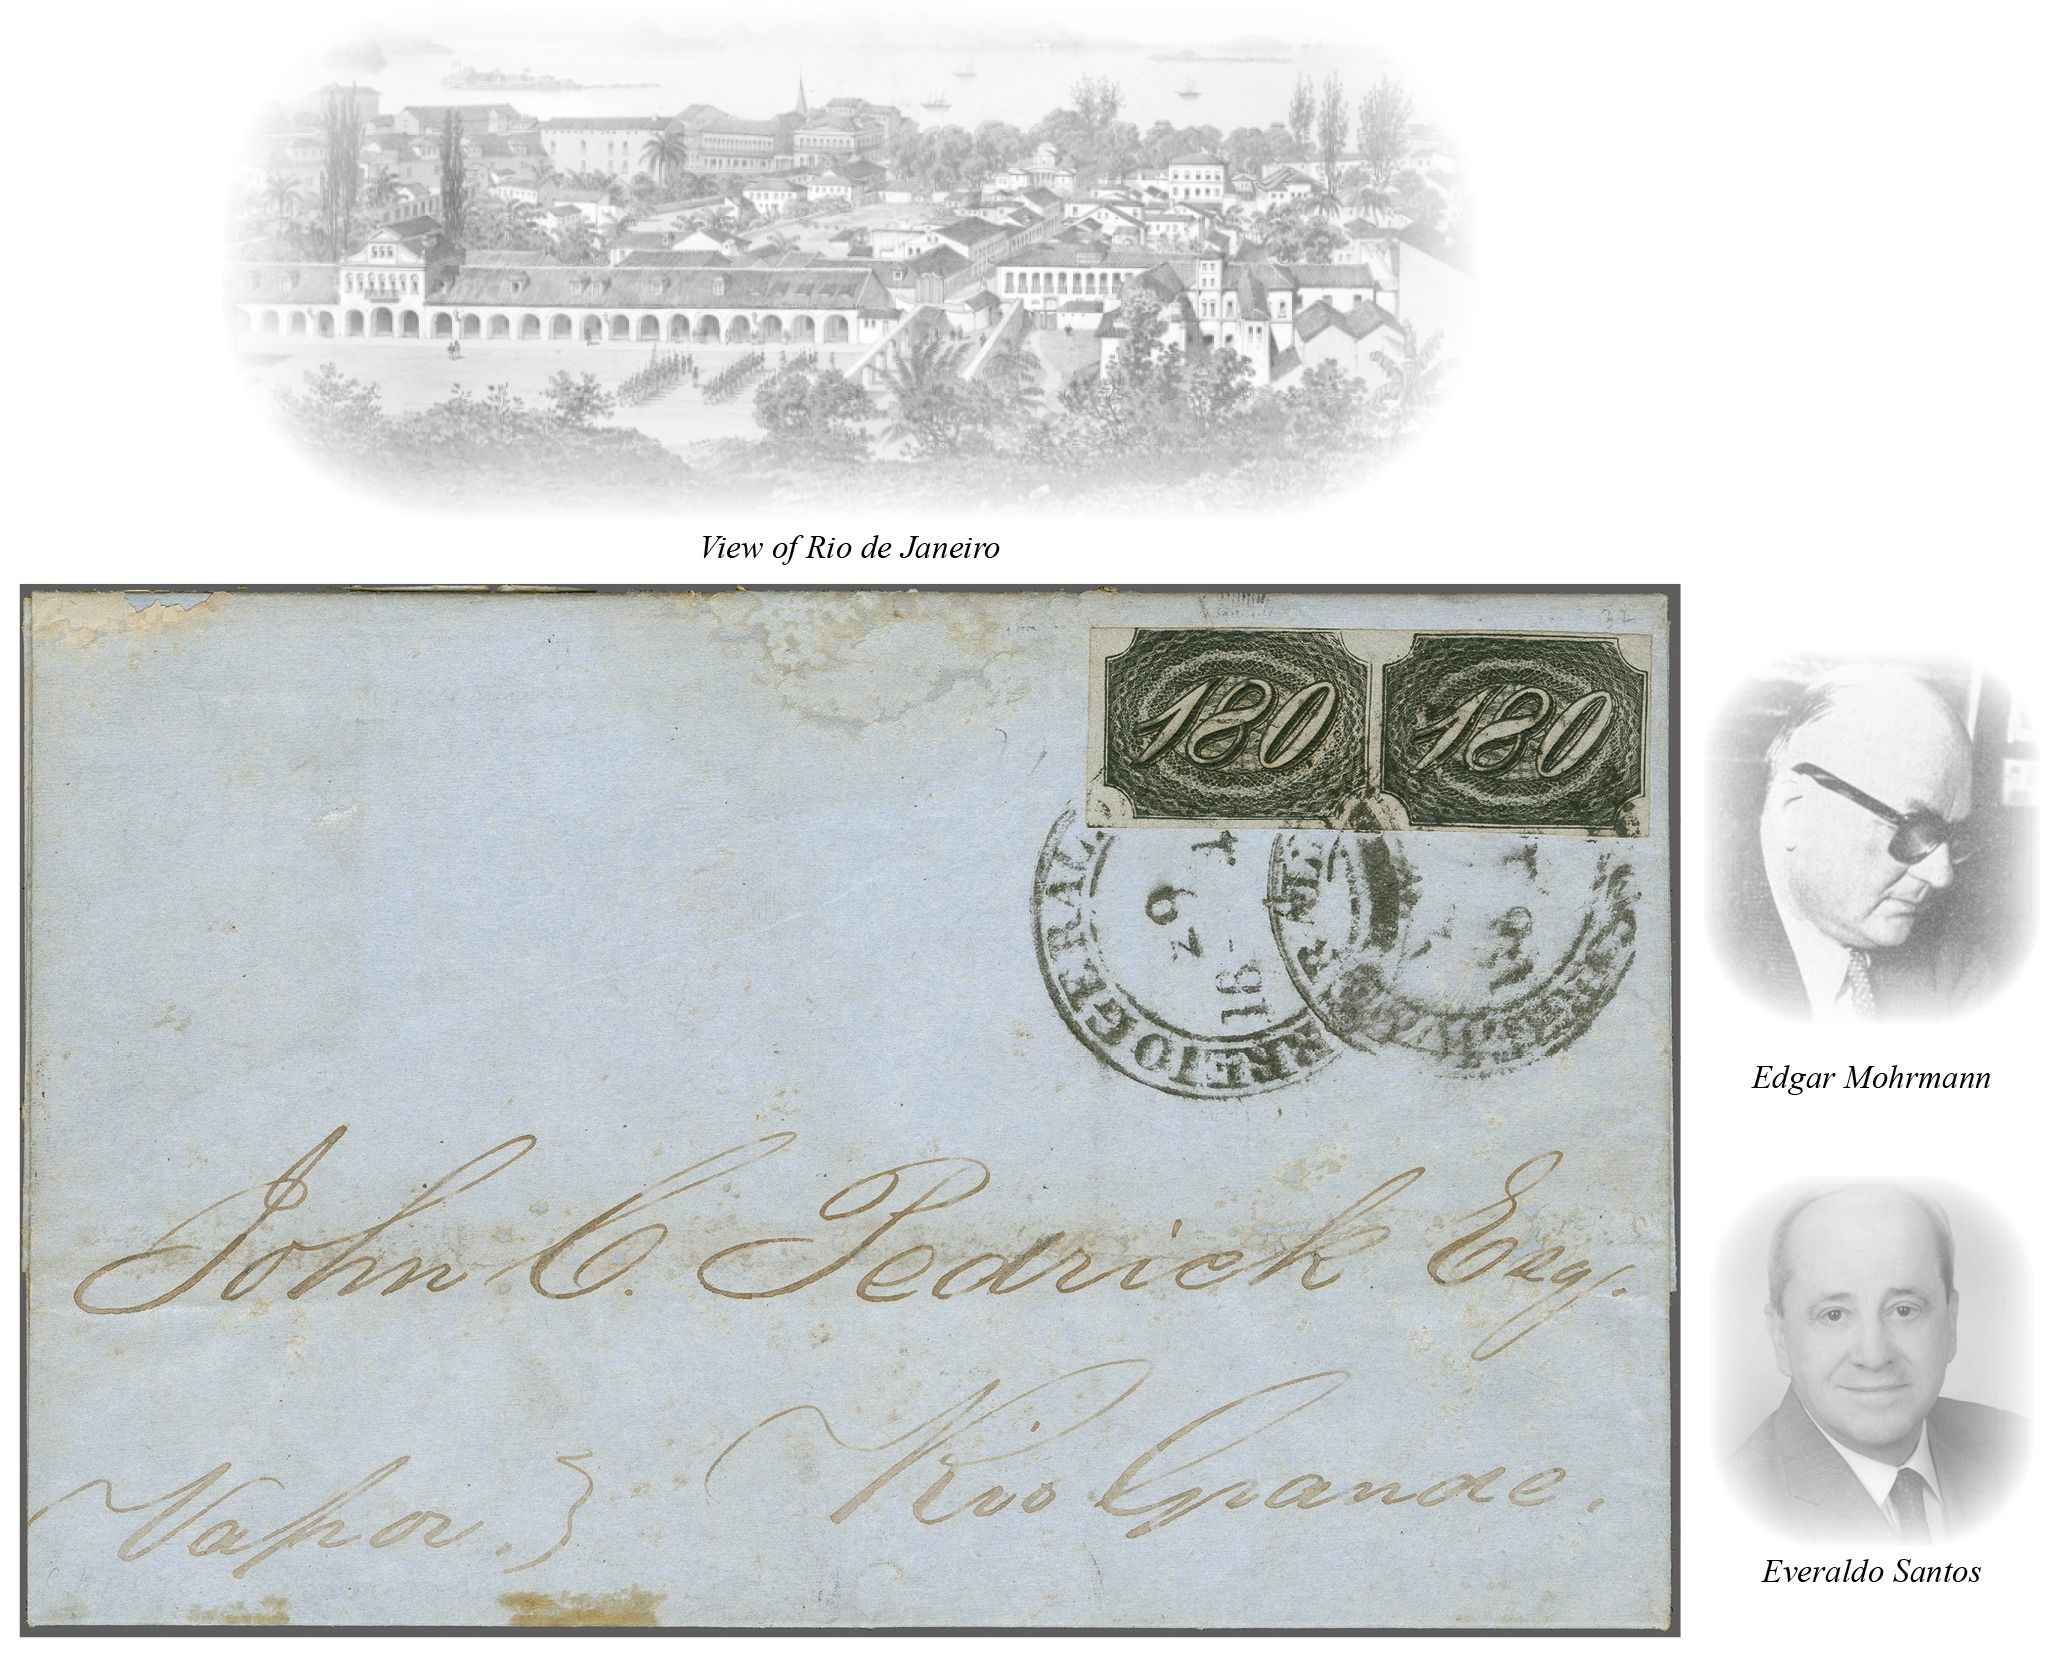 View of Rio de Janeiro
180 180
RREIO GERAL
John C. Pedrick Esq.
Vapor.
Rio Grande.
Edgar Mohrmann
Everaldo Santos